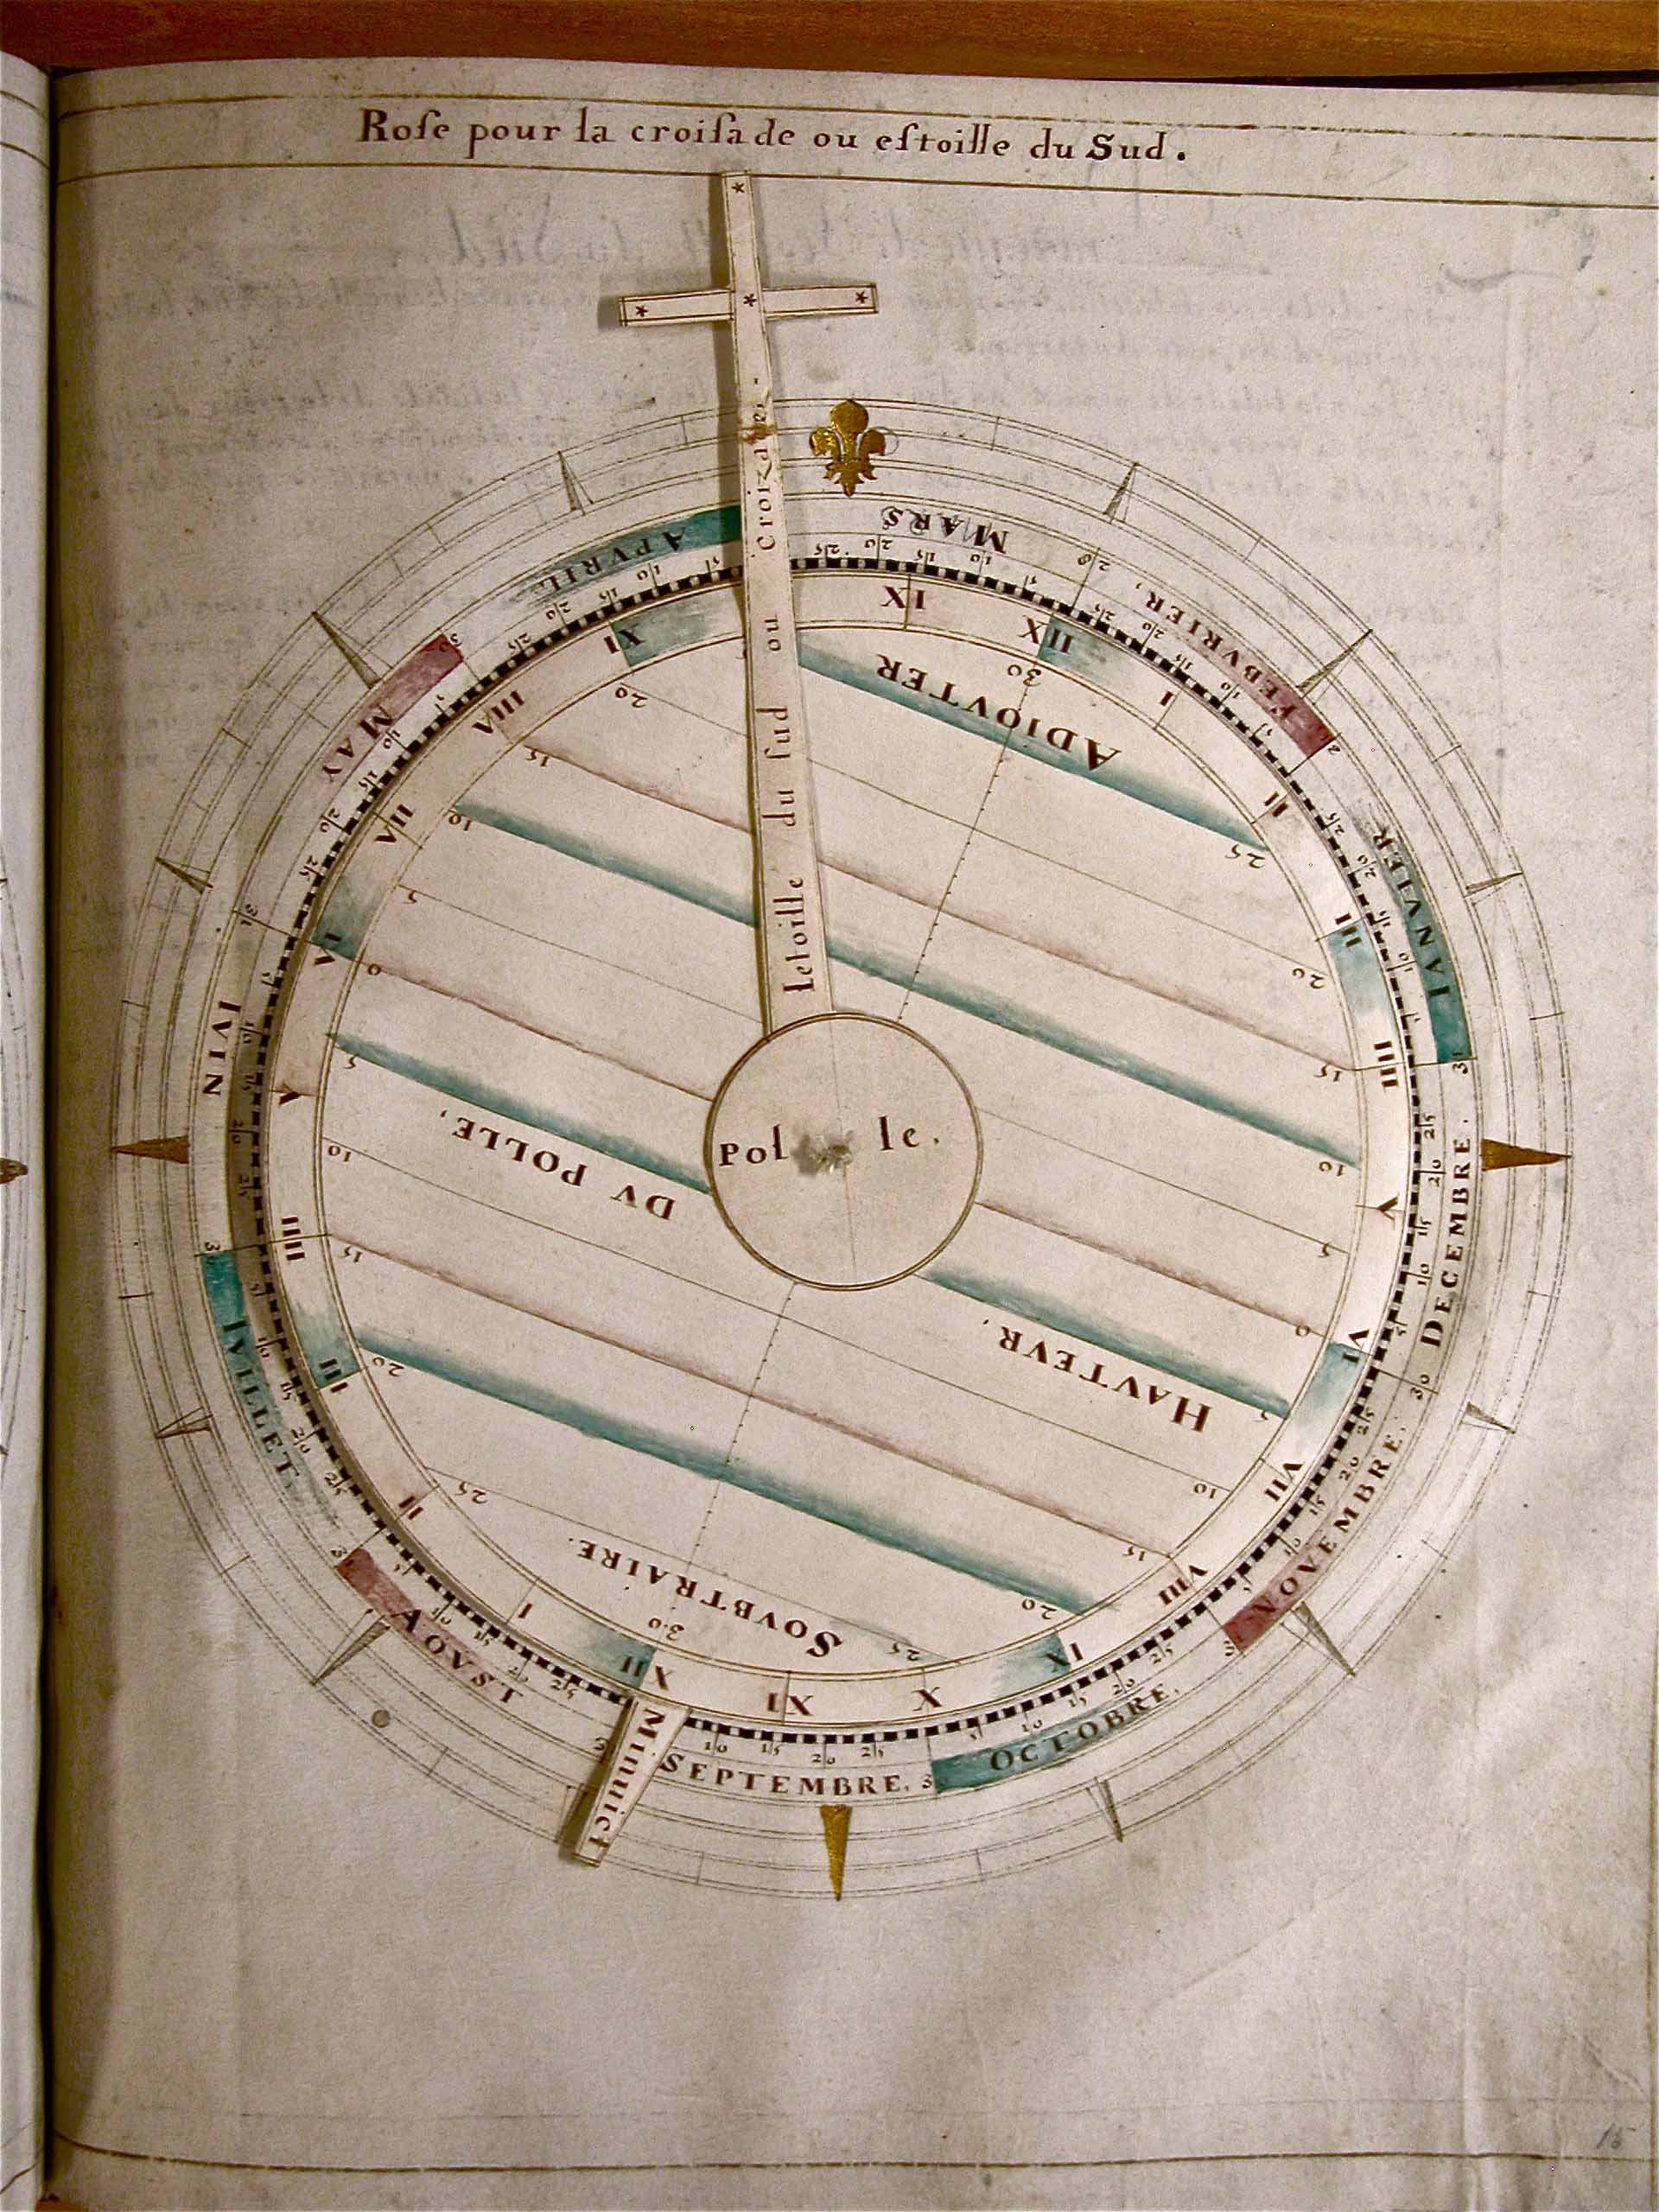 Rose pour la croisade ou estoille du Sud.
Letoille du sud ou Croizade.
Polle.
Minuict
MARS
FEBVRIER,
IANVIER
DECEMBRE.
NOVEMBRE.
OCTOBRE,
SEPTEMBRE.
AOVST
IVILLET
IVIN
MAY
APVRIL
XII
I
II
III
IIII
V
VI
VII
VIII
IX
X
XI
XII
I
II
III
IIII
V
VI
VII
VIII
IX
XI
ADIOVTER
HAVTEVR,
DV POLLE,
SOVBTRAIRE.
30
25
20
15
10
5
0
5
10
15
20
25
30
25
20
15
10
5
0
5
10
15
20
15